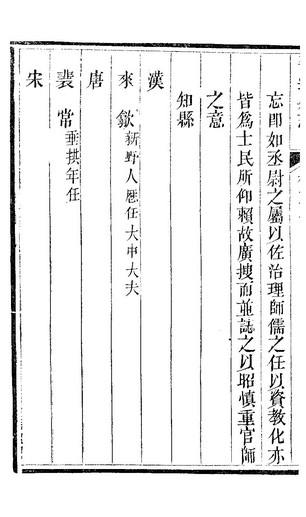 忘即如丞尉之屬以佐治理師儒之任以資教化亦
皆爲士民所仰賴故廣搜而並誌之以昭慎重官師
之意
知縣
漢
來歙新野人歷任大中大夫
唐
裴常垂拱年任
宋